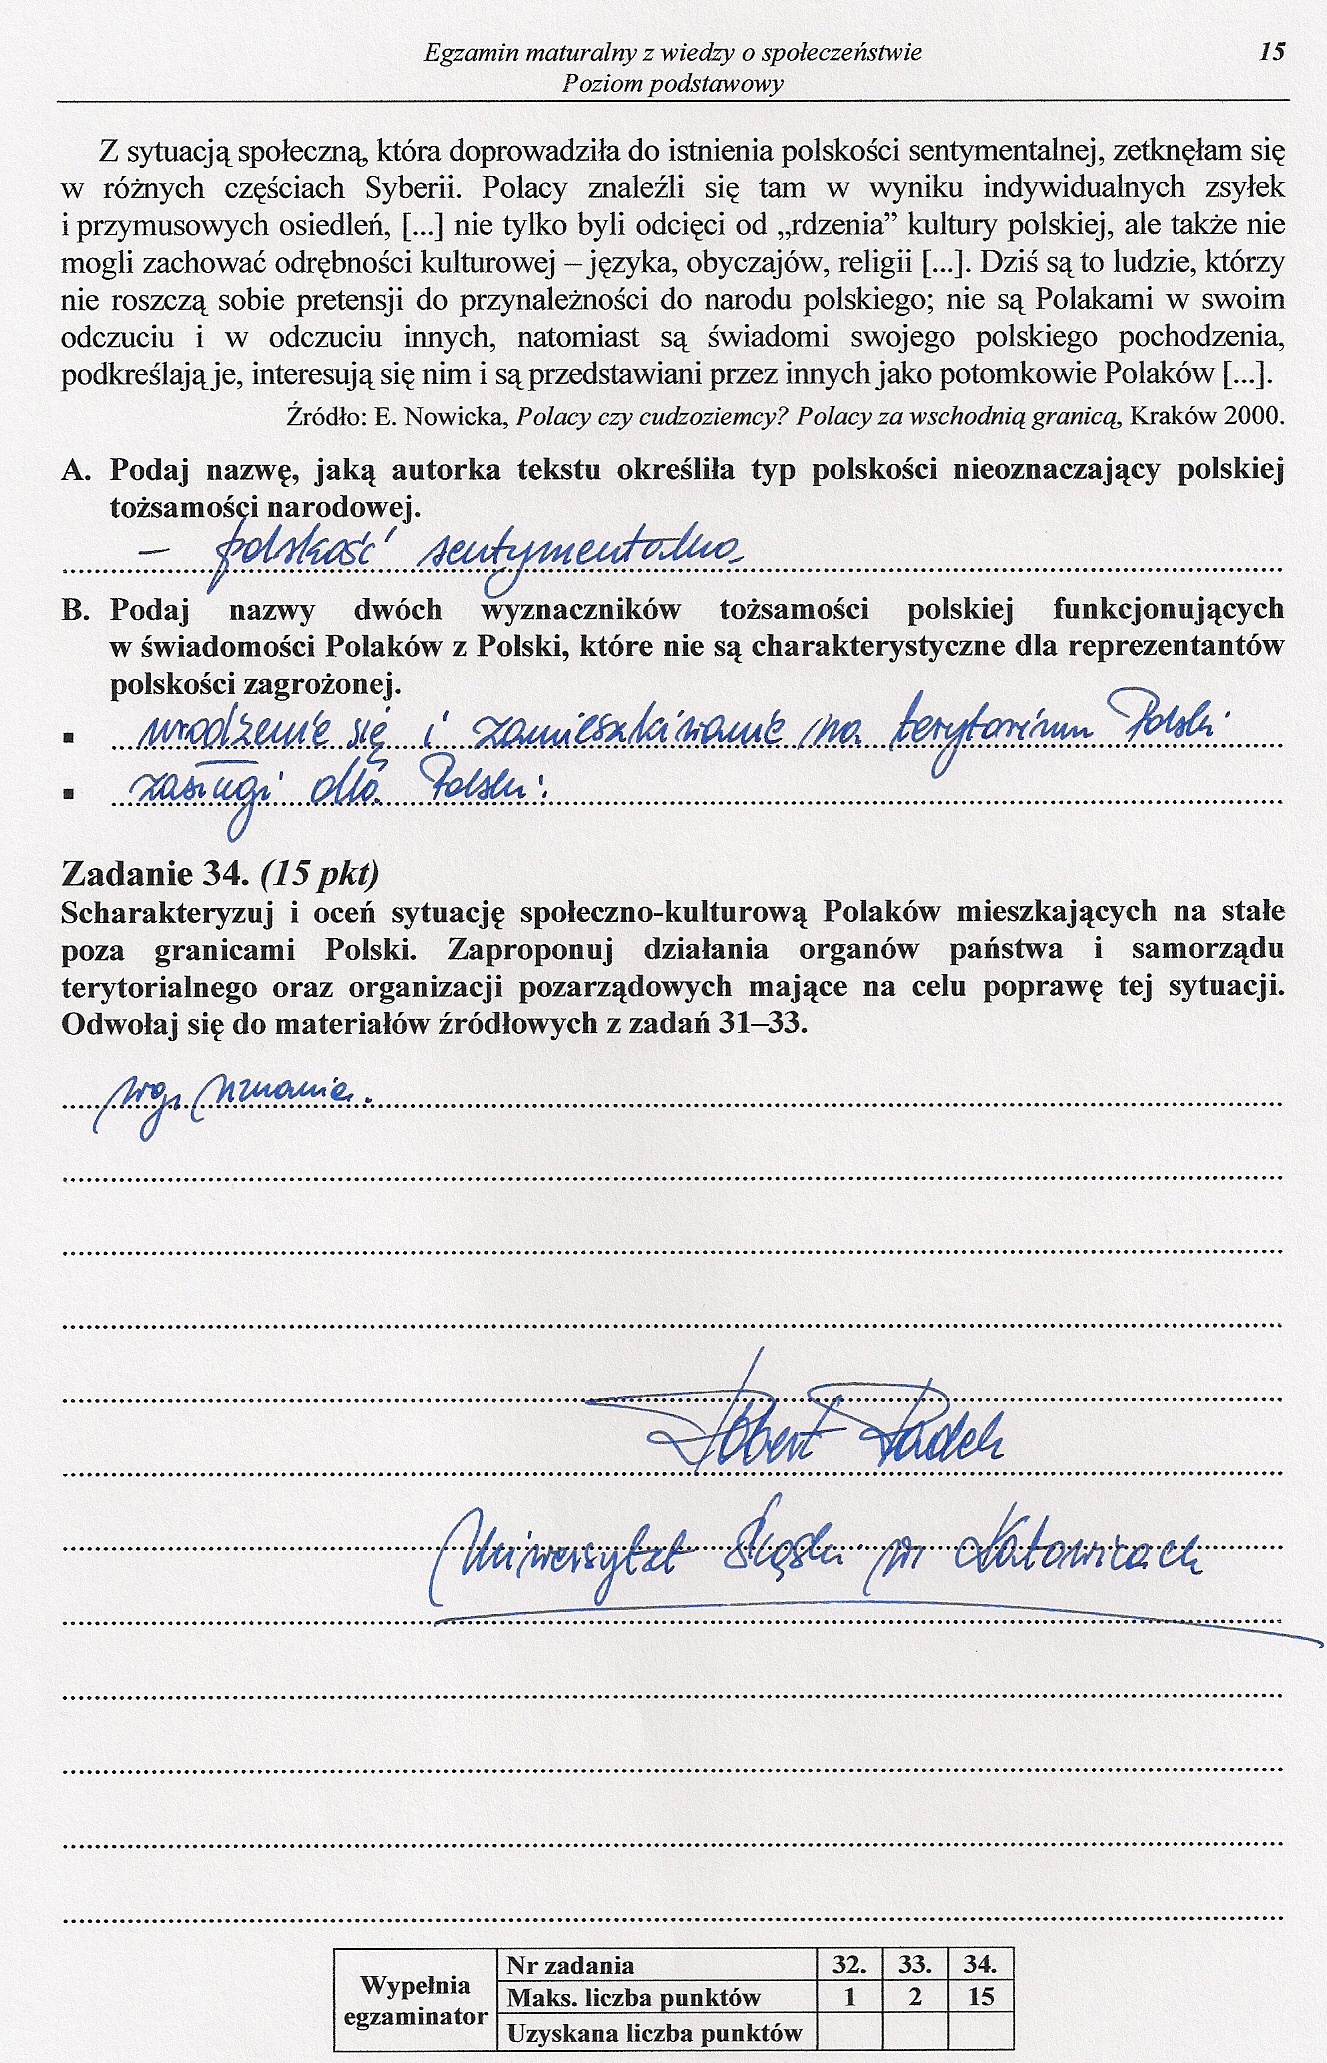 Egzamin maturalny z wiedzy o społeczeństwie 15
Poziom podstawowy
Z sytuacją społeczną, która doprowadziła do istnienia polskości sentymentalnej, zetknęłam się
w różnych częściach Syberii. Polacy znaleźli się tam w wyniku indywidualnych zsyłek
i przymusowych osiedleń, [...] nie tylko byli odcięci od „rdzenia” kultury polskiej, ale także nie
mogli zachować odrębności kulturowej – języka, obyczajów, religii [...]. Dziś są to ludzie, którzy
nie roszczą sobie pretensji do przynależności do narodu polskiego; nie są Polakami w swoim
odczuciu i w odczuciu innych, natomiast są świadomi swojego polskiego pochodzenia,
podkreślają je, interesują się nim i są przedstawiani przez innych jako potomkowie Polaków [...].
Źródło: E. Nowicka, Polacy czy cudzoziemcy? Polacy za wschodnią granicą, Kraków 2000.
A. Podaj nazwę, jaką autorka tekstu określiła typ polskości nieoznaczający polskiej
tożsamości narodowej.
– polskość sentymentalna
B. Podaj nazwy dwóch wyznaczników tożsamości polskiej funkcjonujących
w świadomości Polaków z Polski, które nie są charakterystyczne dla reprezentantów
polskości zagrożonej.
▪ urodzenie się i zamieszkiwanie na terytorium Polski
▪ zasługi dla Polski
Zadanie 34. (15 pkt)
Scharakteryzuj i oceń sytuację społeczno-kulturową Polaków mieszkających na stałe
poza granicami Polski. Zaproponuj działania organów państwa i samorządu
terytorialnego oraz organizacji pozarządowych mające na celu poprawę tej sytuacji.
Odwołaj się do materiałów źródłowych z zadań 31–33.
wg. uznania.
Robert Radek
Uniwersytet Śląski w Katowicach
Wypełnia egzaminator
Nr zadania 32. 33. 34.
Maks. liczba punktów 1 2 15
Uzyskana liczba punktów